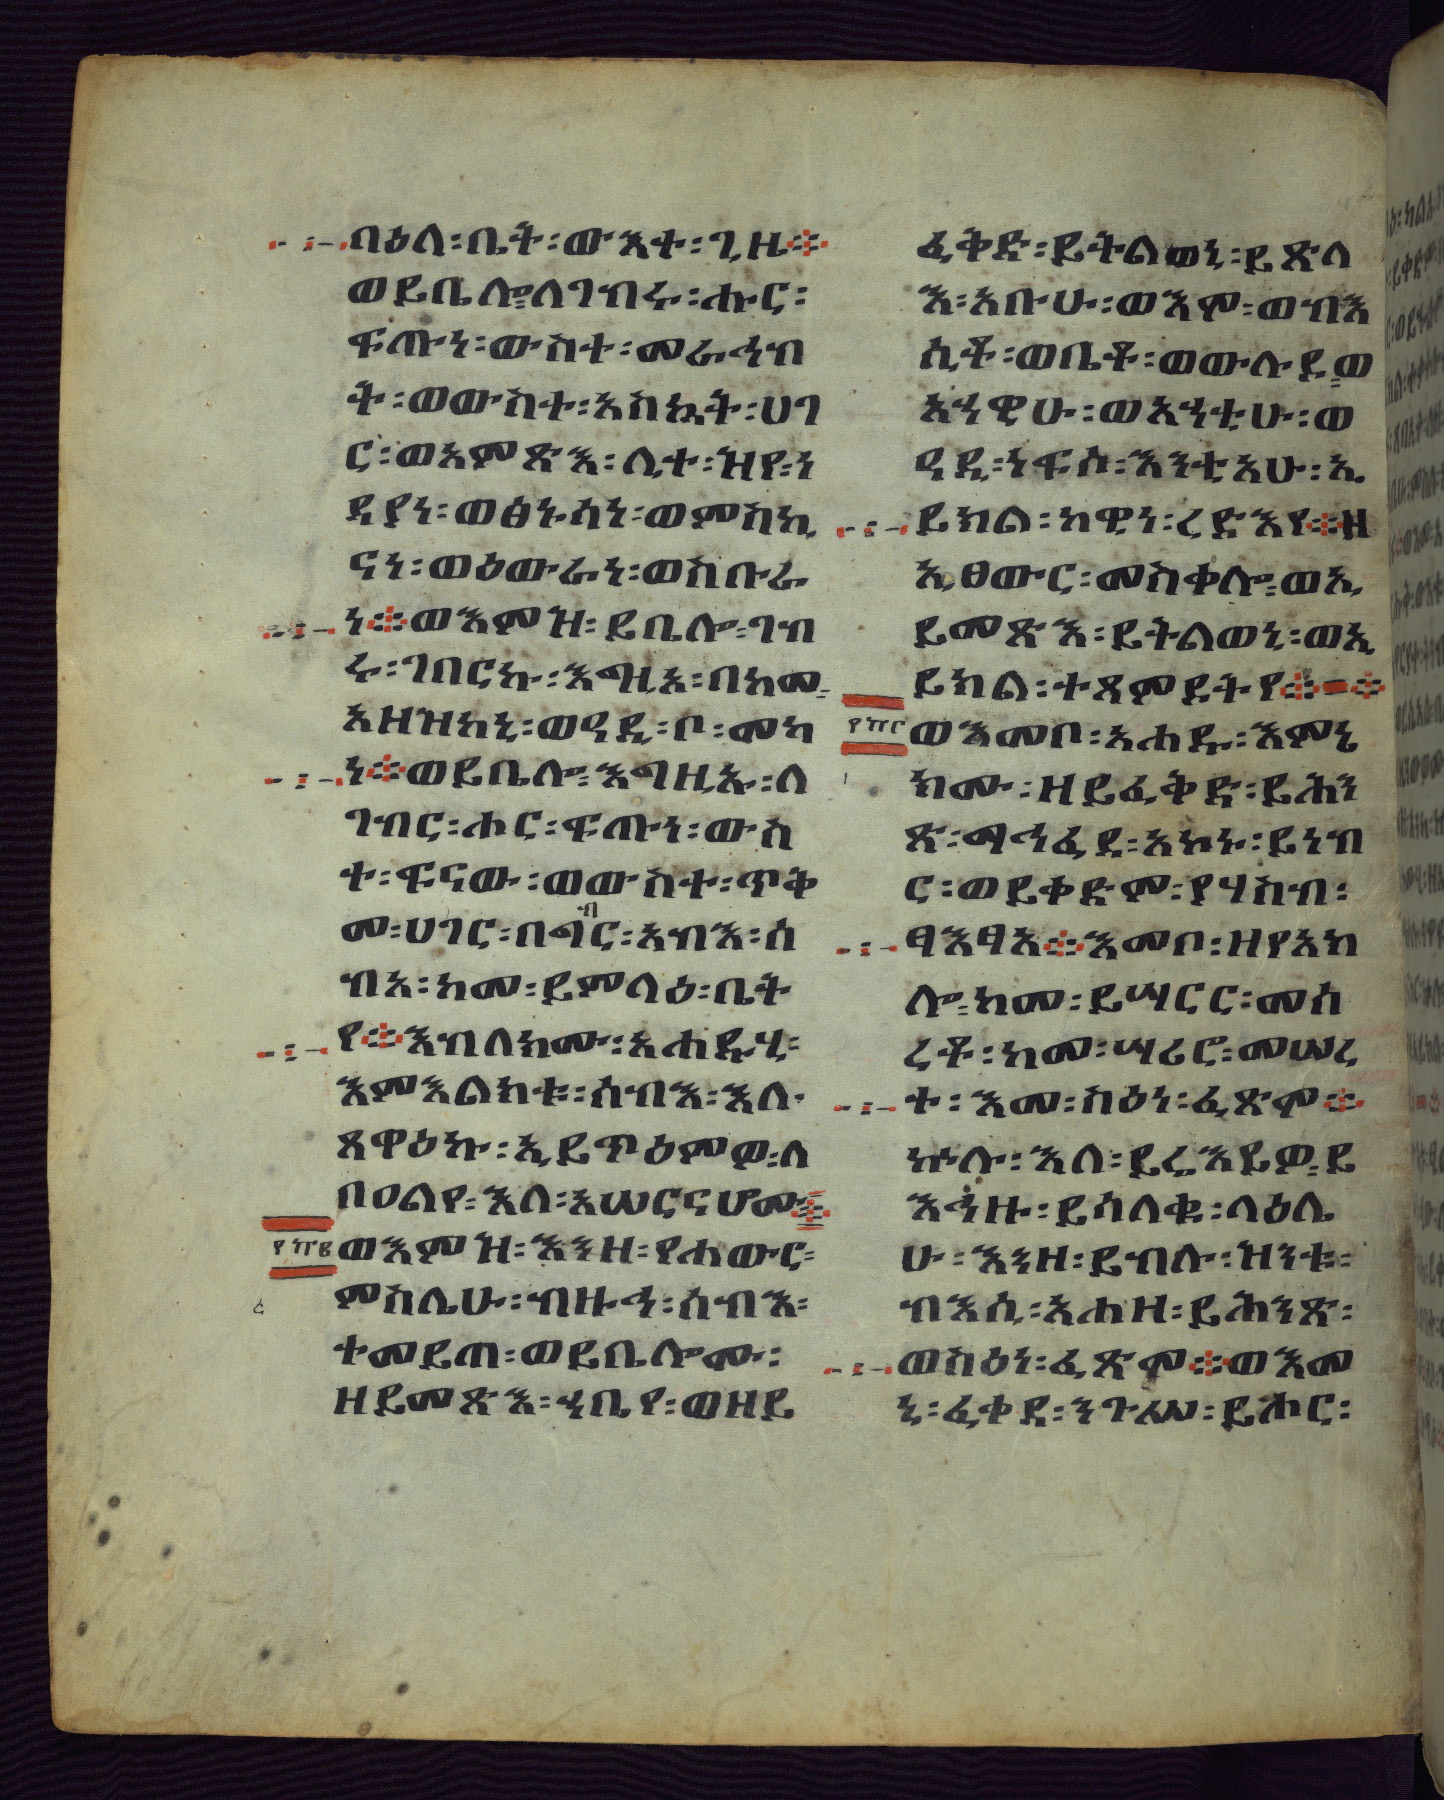 በዕለ፡ቤት፡ውእተ፡ጊዜ፨
ወይቤሎ፡ለገብሩ፡ሑር፡
ፍጡነ፡ውስተ፡መራኅብ
ት፡ወውስተ፡አስኳት፡ሀገ
ር፡ወአምጽእ፡ሊተ፡ዝየ፡ነ
ዳያነ፡ወፅኑሳነ፡ወምስኪ
ናነ፡ወዕውራነ፡ወስቡራ
ነ፨ወእምዝ፡ይቤሎ፡ገብ
ሩ፡ገበርኩ፡እግዚእ፡በከመ፡
አዘዝከኒ፡ወዓዲ፡ቦ፡መካ
ነ፨ወይቤሎ፡እግዚኡ፡ለ
ገብር፡ሑር፡ፍጡነ፡ውስ
ተ፡ፍናው፡ወውስተ፡ጥቅ
መ፡ሀገር፡በግብር፡አብእ፡ሰ
ብአ፡ከመ፡ይምላዕ፡ቤት
የ፨እብለክሙ፡አሐዱሂ፡
እምእልክቱ፡ሰብእ፡እለ፡
ጸዋዕኩ፡ኢይጥዕምዎ፡ለ
በዐልየ፡እለ፡አሠርናሆሙ፨
፻፹፪ ወእምዝ፡እንዘ፡የሐውር፡
ምስሌሁ፡ብዙኅ፡ሰብእ፡
ተመይጠ፡ወይቤሎሙ፡
ዘይመጽእ፡ኀቤየ፡ወዘይ
ፈቅድ፡ይትልወኒ፡ይጽላ
እ፡አቡሁ፡ወእሞ፡ወብእ
ሲቶ፡ወቤቶ፡ወውሉዶ፡ወ
አኀዊሁ፡ወአኀቲሁ፡ወ
ዓዲ፡ነፍሰ፡እንቲአሁ፡ኢ
ይክል፡ከዊነ፡ረድእየ፨ዘ
ኢፀውር፡መስቀሎ፡ወኢ
ይመጽእ፡ይትልወኒ፡ወኢ
ይክል፡ተጸምዶትየ፨
፻፹፫ ወእመቦ፡አሐዱ፡እምኔ
ክሙ፡ዘይፈቅድ፡ይሕን
ጽ፡ማኅፈደ፡አኮኑ፡ይነብ
ር፡ወይቀድም፡የሃስብ፡
ፃእፃአ፨እመቦ፡ዘየአክ
ሎ፡ከመ፡ይሣርር፡መሰ
ረቶ፡ከመ፡ሣሪሮ፡መሠረ
ተ፡እመ፡ስዕነ፡ፈጽሞ፨
ኵሉ፡እለ፡ይሬእይዎ፡ይ
እኅዙ፡ይሳለቁ፡ላዕሌ
ሁ፡እንዘ፡ይብሉ፡ዝንቱ፡
ብእሲ፡አሐዘ፡ይሕንጽ፡
ወስዕነ፡ፈጽሞ፨ወእመ
ኒ፡ፈቀደ፡ንጉሠ፡ይሑር፡